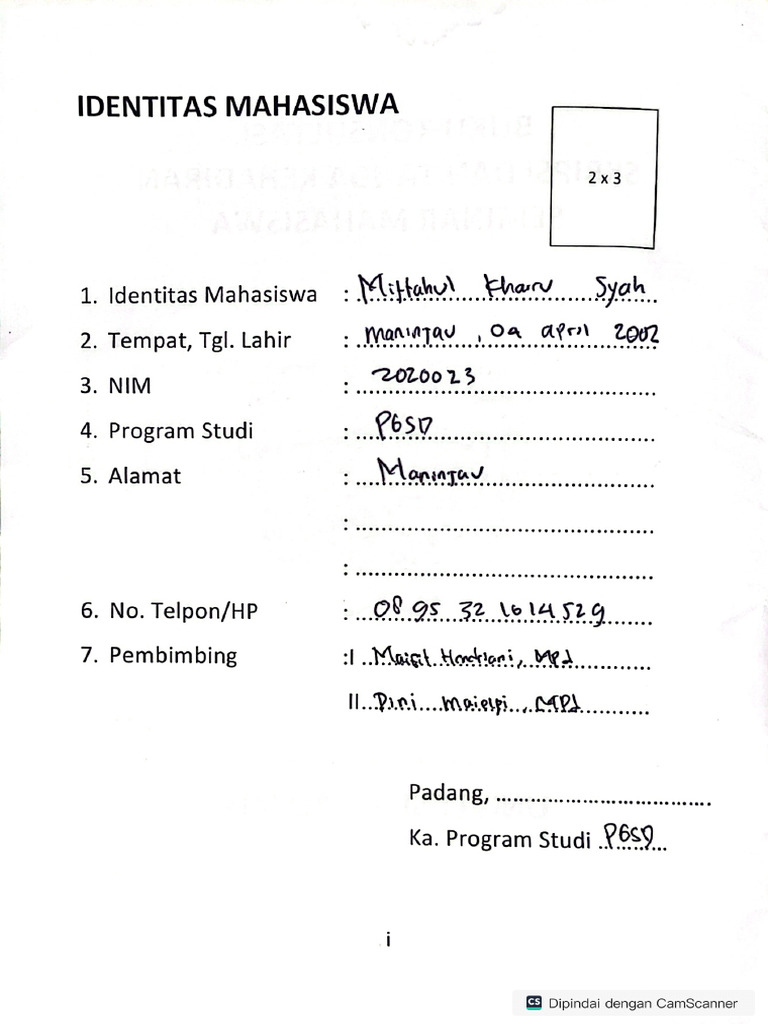 IDENTITAS MAHASISWA
2 x 3
1. Identitas Mahasiswa : Miftahul Khairu Syah
2. Tempat, Tgl. Lahir : Maninjau, 09 april 2002
3. NIM : 2020023
4. Program Studi : PGSD
5. Alamat : Maninjau
:
:
6. No. Telpon/HP : 08 95 32 1614529
7. Pembimbing :I Hendriani, MPd
II MPd
Padang,
Ka. Program Studi PGSD
i
CS Dipindai dengan CamScanner